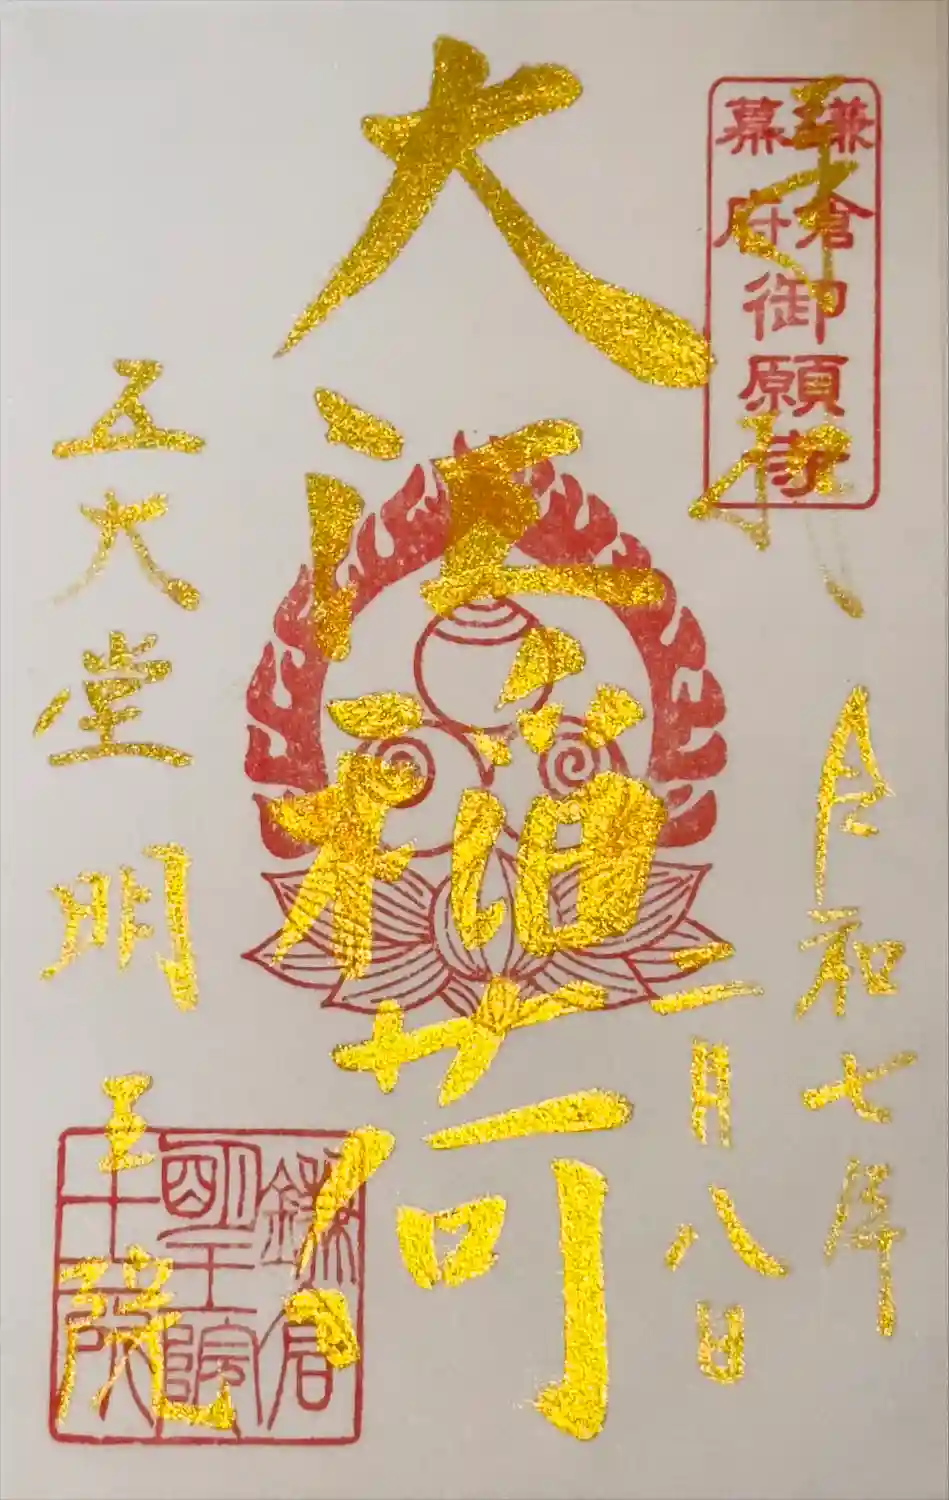 奉拝
鎌倉
幕府
御願寺
令和七年
二月八日
大江稲荷
五大堂明王院
鎌倉
明王院